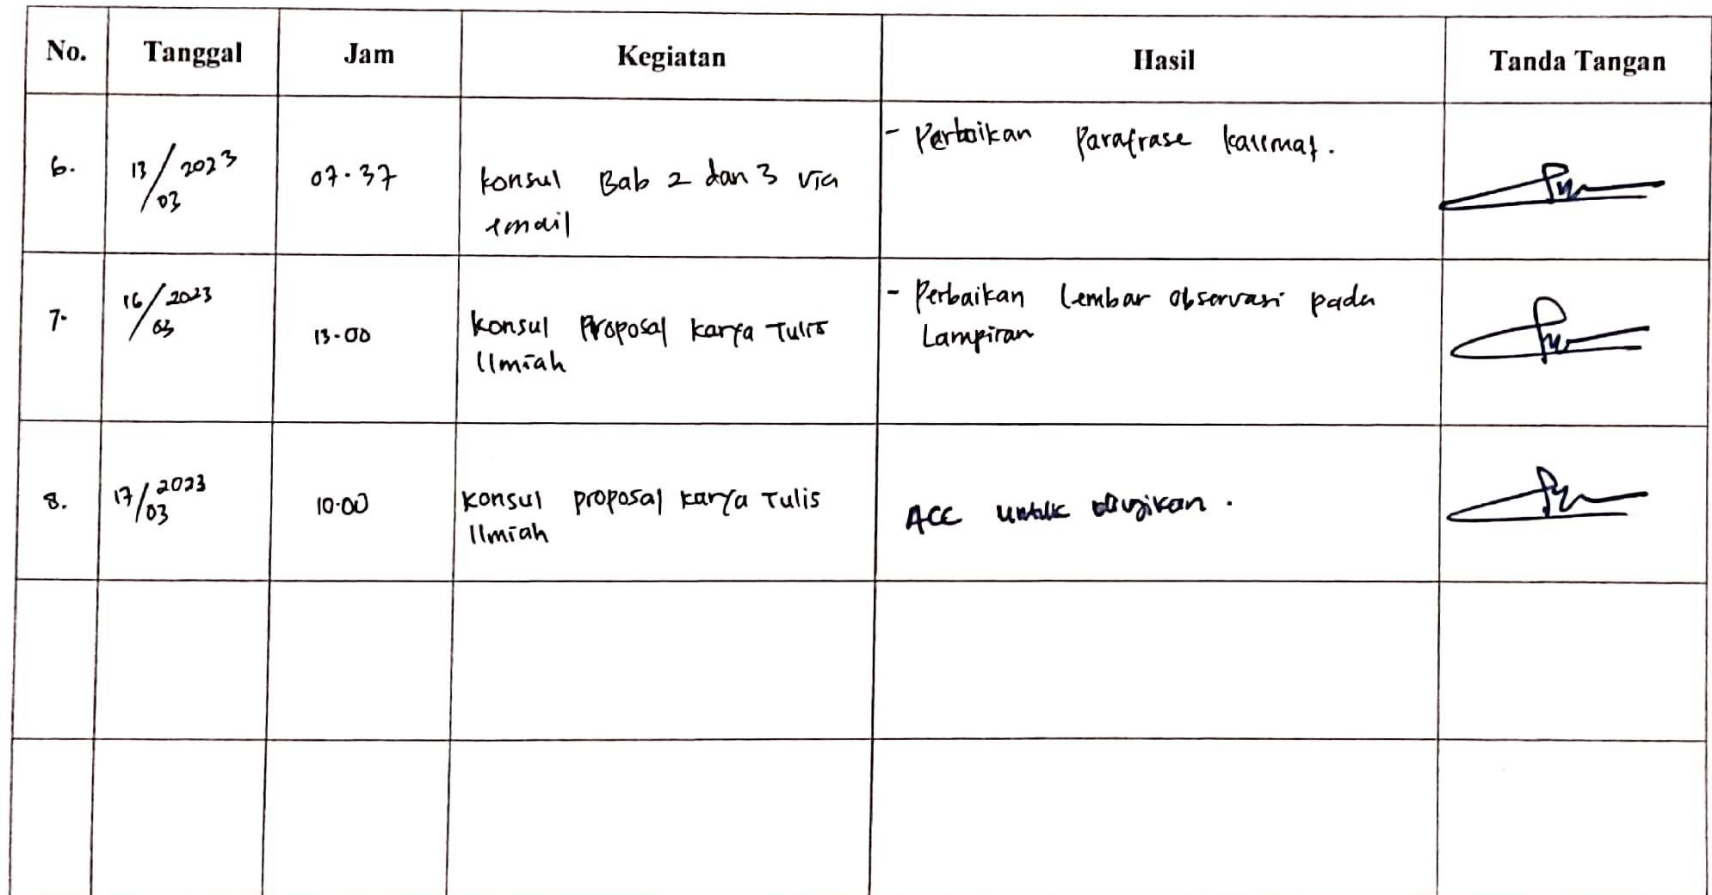 No. Tanggal Jam Kegiatan Hasil Tanda Tangan
6. 13/03 2023 07.37 konsul Bab 2 dan 3 via - Perbaikan Parafrase kalimat.
email
7. 16/03 2023 13.00 konsul Proposal karya Tulis - Perbaikan lembar observasi pada
Ilmiah Lampiran
8. 17/03 2023 10.00 konsul proposal karya Tulis ACC untuk diujikan.
Ilmiah